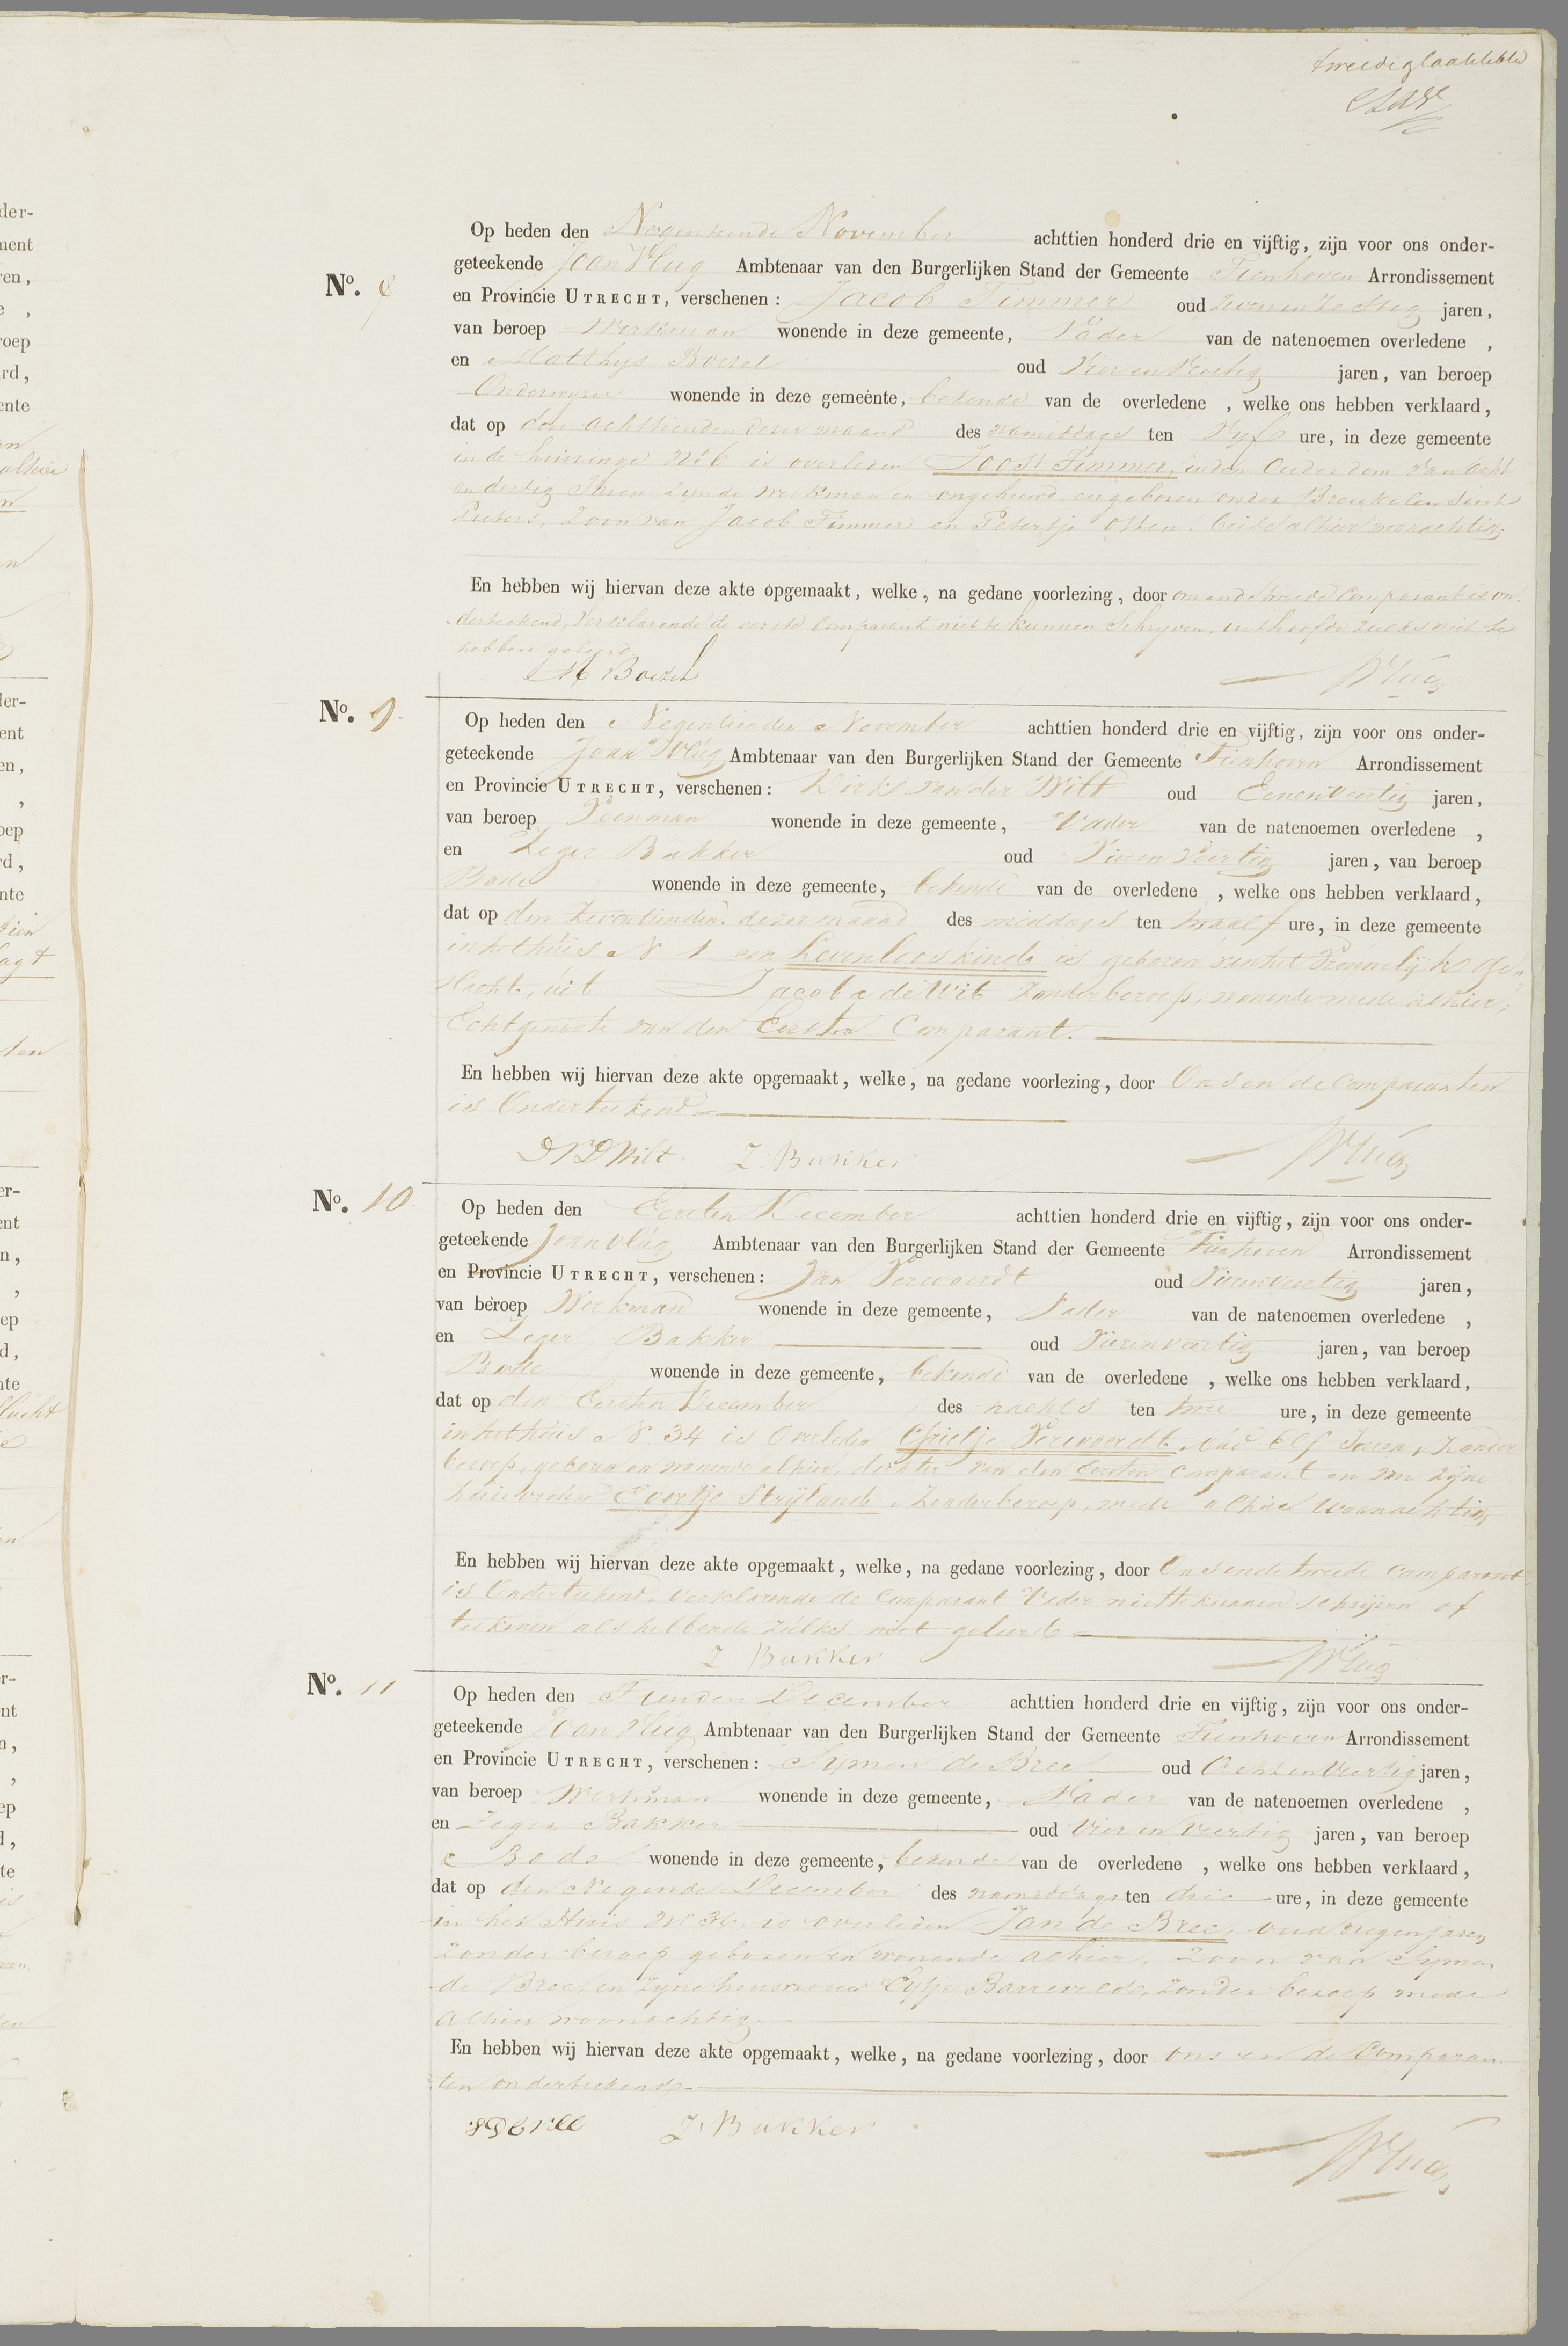 tweede
Op heden den Negentiende November achttien honderd drie en vijftig, zijn voor ons onder-
No. 8
geteekende Joan Vlug Ambtenaar van den Burgerlijken Stand der Gemeente Tienhoven Arrondissement
en Provincie UTRECHT, verschenen: Jacob Timmer oud Zeven en Zestig jaren,
van beroep Werkman wonende in deze gemeente, Vader van de natenoemen overledene ,
en Matthys Boezel oud Vier en Veertig jaren, van beroep
Onderwyzer wonende in deze gemeente, bekende van de overledene , welke ons hebben verklaard,
dat op den achttienden dezer maand des namiddags ten Vyf ure, in deze gemeente
in de huizinge No 6 is overleden Joost Timmer, in den Ouderdom van acht
en dertig Jaren, zynde werkman en ongehuwd, en geboren onder Breukelen Sint
Pieters, Zoon van Jacob Timmer en Petertje Otten, beide alhier woonachtig.
En hebben wij hiervan deze akte opgemaakt, welke, na gedane voorlezing, door ons en de tweede Comparant is on-
derteekend, Verklarende de eerste Comparant niet te kunnen Schryven, uithoofde zulks niet te
hebben geleerd.
M Boezel Vlug
No. 9.
Op heden den Negentienden November achttien honderd drie en vijftig, zijn voor ons onder-
geteekende Joan Vlug Ambtenaar van den Burgerlijken Stand der Gemeente Tienhoven Arrondissement
en Provincie UTRECHT, verschenen: Dirk van der Wilt oud Eenenveertig jaren,
van beroep Veenman wonende in deze gemeente, Vader van de natenoemen overledene ,
en Zeger Bakker oud Vierenveertig jaren, van beroep
Bode wonende in deze gemeente, bekende van de overledene , welke ons hebben verklaard,
dat op den Zeventienden dezer maand des middags ten twaalf ure, in deze gemeente
in het huis N 1 een Levenloos kind is geboren van het Vrouwelijk ge-
slacht, uit Jacoba de Wit zonder beroep, wonende mede alhier,
Echtgenoote van den Eersten Comparant.
En hebben wij hiervan deze akte opgemaakt, welke, na gedane voorlezing, door Ons en de Comparanten
is Onderteekend
D V D Wilt Z. Bakker Vlug
No. 10
Op heden den Eersten December achttien honderd drie en vijftig, zijn voor ons onder-
geteekende Joan Vlug Ambtenaar van den Burgerlijken Stand der Gemeente Tienhoven Arrondissement
en Provincie UTRECHT, verschenen: Jan Verwoerdt oud Vierenveertig jaren,
van beroep Werkman wonende in deze gemeente, Vader van de natenoemen overledene ,
en Zeger Bakker oud Vierenveertig jaren, van beroep
Bode wonende in deze gemeente, bekende van de overledene , welke ons hebben verklaard,
dat op den Eersten December des nachts ten twee ure, in deze gemeente
in het huis N. 34 is Overleden Grietje Verwoerdt, oud Elf Jaren, Zonder
beroep, geboren en wonende alhier, dochter van den Eersten Comparant en van zijne
huisvrouw Evertje Strijland, Zonder beroep, mede alhier woonachtig
En hebben wij hiervan deze akte opgemaakt, welke, na gedane voorlezing, door Ons en de tweede Comparant
is Onderteekend. Verklarende de Comparant Vader niet te kunnen schrijven of
teekenen als hebbende zulks niet geleerd
Z Bakker Vlug
No. 11
Op heden den Tienden December achttien honderd drie en vijftig, zijn voor ons onder-
geteekende Joan Vlug Ambtenaar van den Burgerlijken Stand der Gemeente Tienhoven Arrondissement
en Provincie UTRECHT, verschenen: Symen de Bree oud Achtenveertig jaren,
van beroep Werkman wonende in deze gemeente, Vader van de natenoemen overledene ,
en Zeger Bakker oud Vier en Veertig jaren, van beroep
Bode wonende in deze gemeente, bekende van de overledene , welke ons hebben verklaard,
dat op den Negende December des namiddags ten drie ure, in deze gemeente
in het Huis No 36, is overleden Jan de Bree, oud negen jaren,
zonder beroep geboren en wonende alhier, Zoon van Symen
de Bree, en zyne huisvrouw Eytje Barreveld, zonder beroep mede
alhier woonachtig.
En hebben wij hiervan deze akte opgemaakt, welke, na gedane voorlezing, door ons en de Comparan-
ten onderteekend.
S D Bree Z. Bakker Vlug